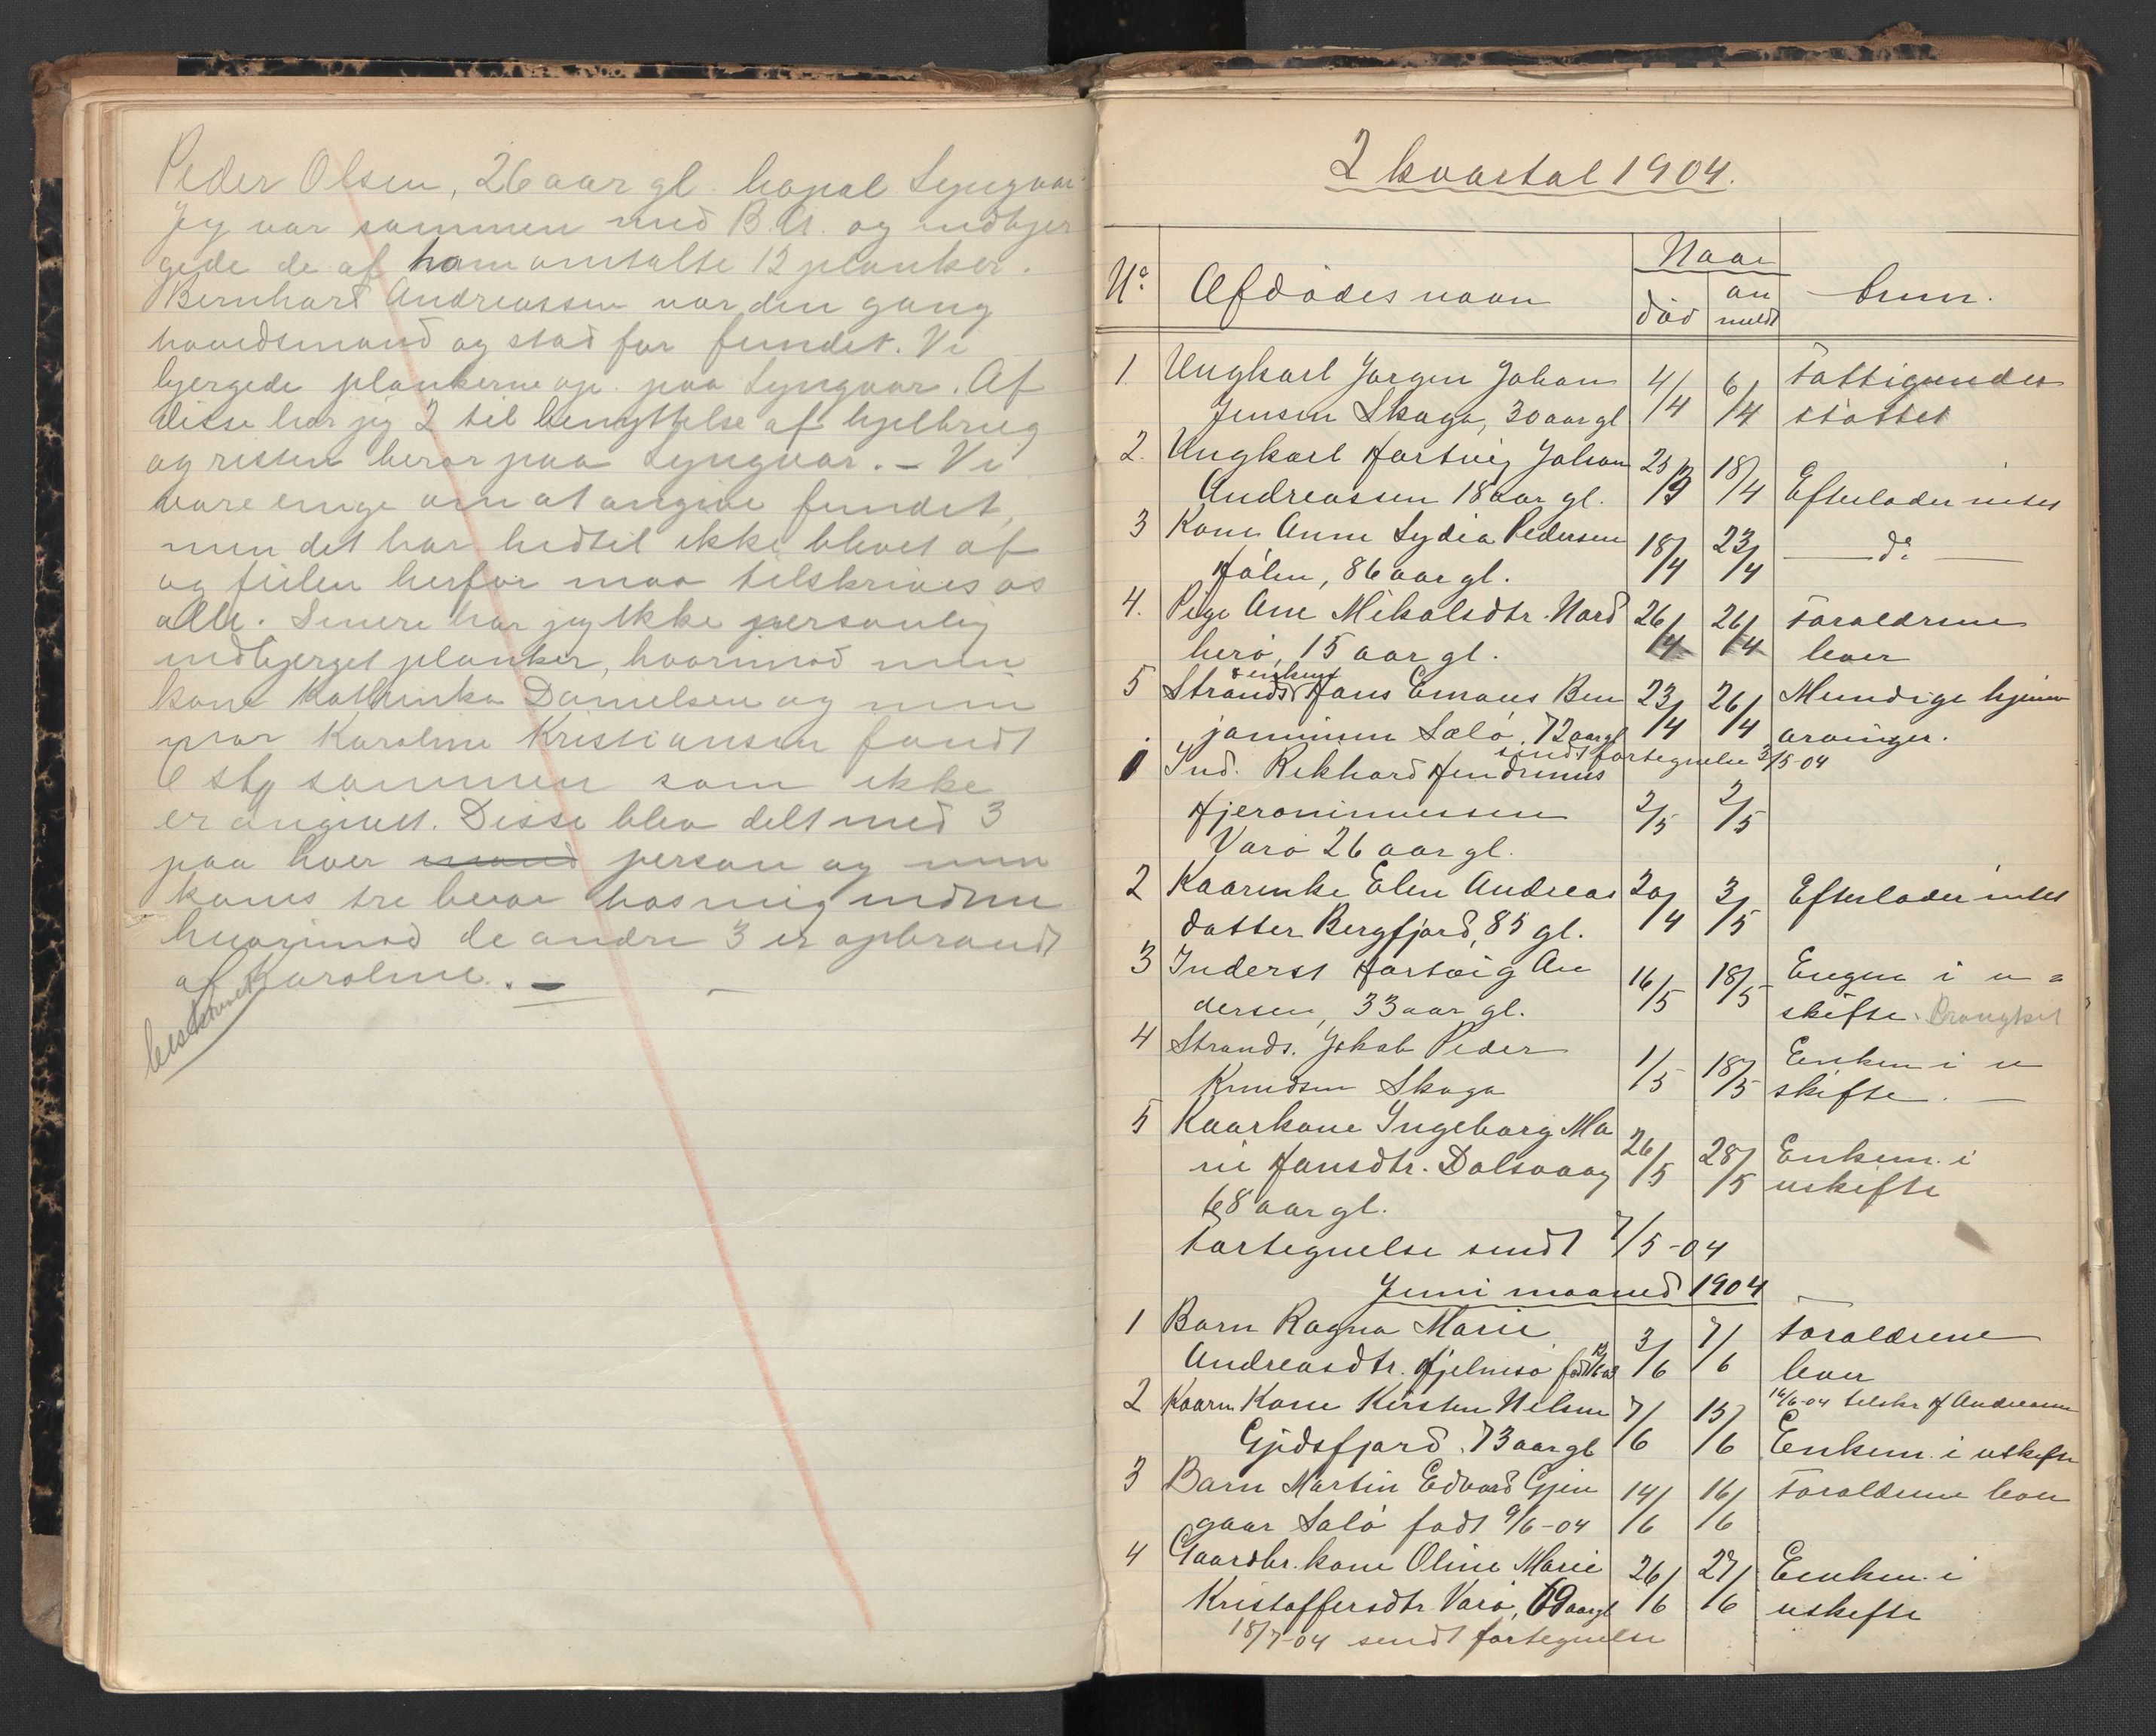 Peder Olsen, 26 aar gl. bopæl Lyngvær.
Jeg var sammen med B.A. og indbjer
gede de af ham omtalte 12 planker.
Bernhard Andreassen var den gang
hovedsmand og stod for fundet. Vi
bjergede plankerne op paa Lyngvær. Af
disse har jeg 2 til benyttelse af hjelbrug
og resten beror paa Lyngvær. – Vi
vare enige om at angive fundet,
men det har hidtil ikke blevet af
og feilen herfor maa tilskrives os
alle. Senere har jeg ikke personlig
indbjerget planker, hvorimod min
kone Kathrinka Danielsen og min
mor Karoline Kristiansen fandt
6 stk sammen som ikke
er angivet. Disse blev delt med 3
paa hver mand person og min
kones tre beror hos mig endnu
hvorimod de andre 3 er opbrændt
af Karoline. –
beskrevet
2 kvartal 1904.
No Afdødes navn Naar død an meldt Anm.
1. Ungkarl Jørgen Johan 4/4 6/4 Fattigunder
Jensen Skaga, 30 aar gl støttet
2. Ungkarl Hartvig Johan 18/4
Andreassen 18 aar gl. Efterlader intet
3 Kone Anne Lydia Pedersen 18/4 23/4 — do —
Hålen, 86 aar gl.
4. Pige Ane Mikalsdtr. Nord 26/4 26/4 Forældrene
herø, 15 aar gl. lever
5 Strands Hans Emaus Ben 23/4 26/4 Myndige hjemme
enkem
jaminsen Sælø, 72 aar gl arvinger.
sendt fortegnelse 3/5 04
1 Ind. Rikhard Hendrinus
Hjeronimussen 2/5 2/5
Værø 26 aar gl.
2 Kaarenke Elen Andreas 20/4 3/5 Efterlader intet
datter Bergfjord, 85 gl.
3 Inderst Hartvig An 16/5 18/5 Engen i u =
dersen, 33 aar gl. skifte.
4 Strands. Jakob Peder 1/5 18/5 Enken i u
Knudsen Skaga skifte. —
5 Kaarkone Ingeborg Ma 26/5 28/5 Enkem. i
rie Hansdtr. Dalsvaag uskifte
68 aar gl.
Fortegnelse sendt 7/5-04
Juni maaned 1904
1 Barn Ragna Marie 3/6 7/6 Forældrene
Andreasdtr. Hjelmsø født lever
2 Kaarm. Kone Kirsten Nilsen 7/6 15/6 16/6-04 tilskr H Andreassen
Gjidsfjord. 73 aar gl Enkem. i uskifte
3 Barn Martin Edvard Gjen 14/6 16/6 Forældrene lever
gaar Sælø født 9/6-04
4 Gaardbr. kone Oline Marie 26/6 27/6 Enkem. i
Kristoffersdtr Værø, 69 aar gl uskifte
18/7-04 sendt fortegnelse